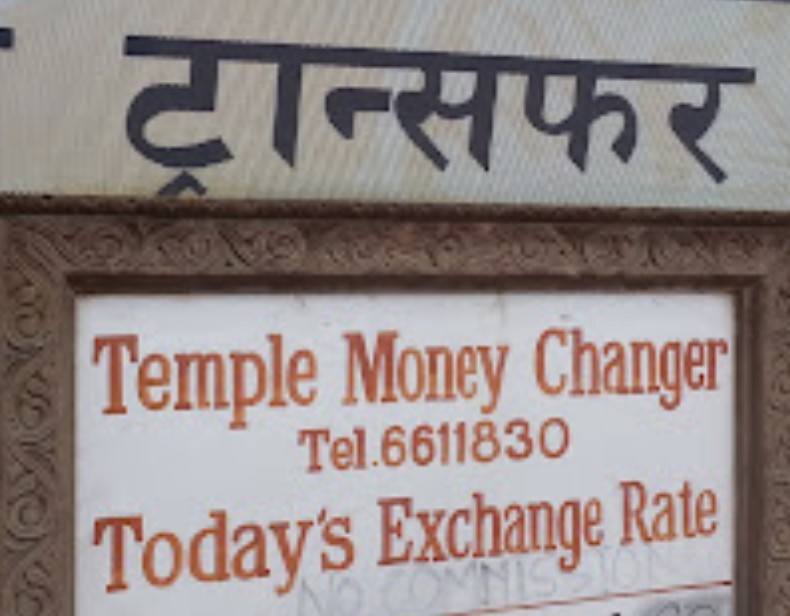 ट्रान्सफर
Temple Money Changer
Tel.6611830
Today's Exchange Rate
NO COMMISSION